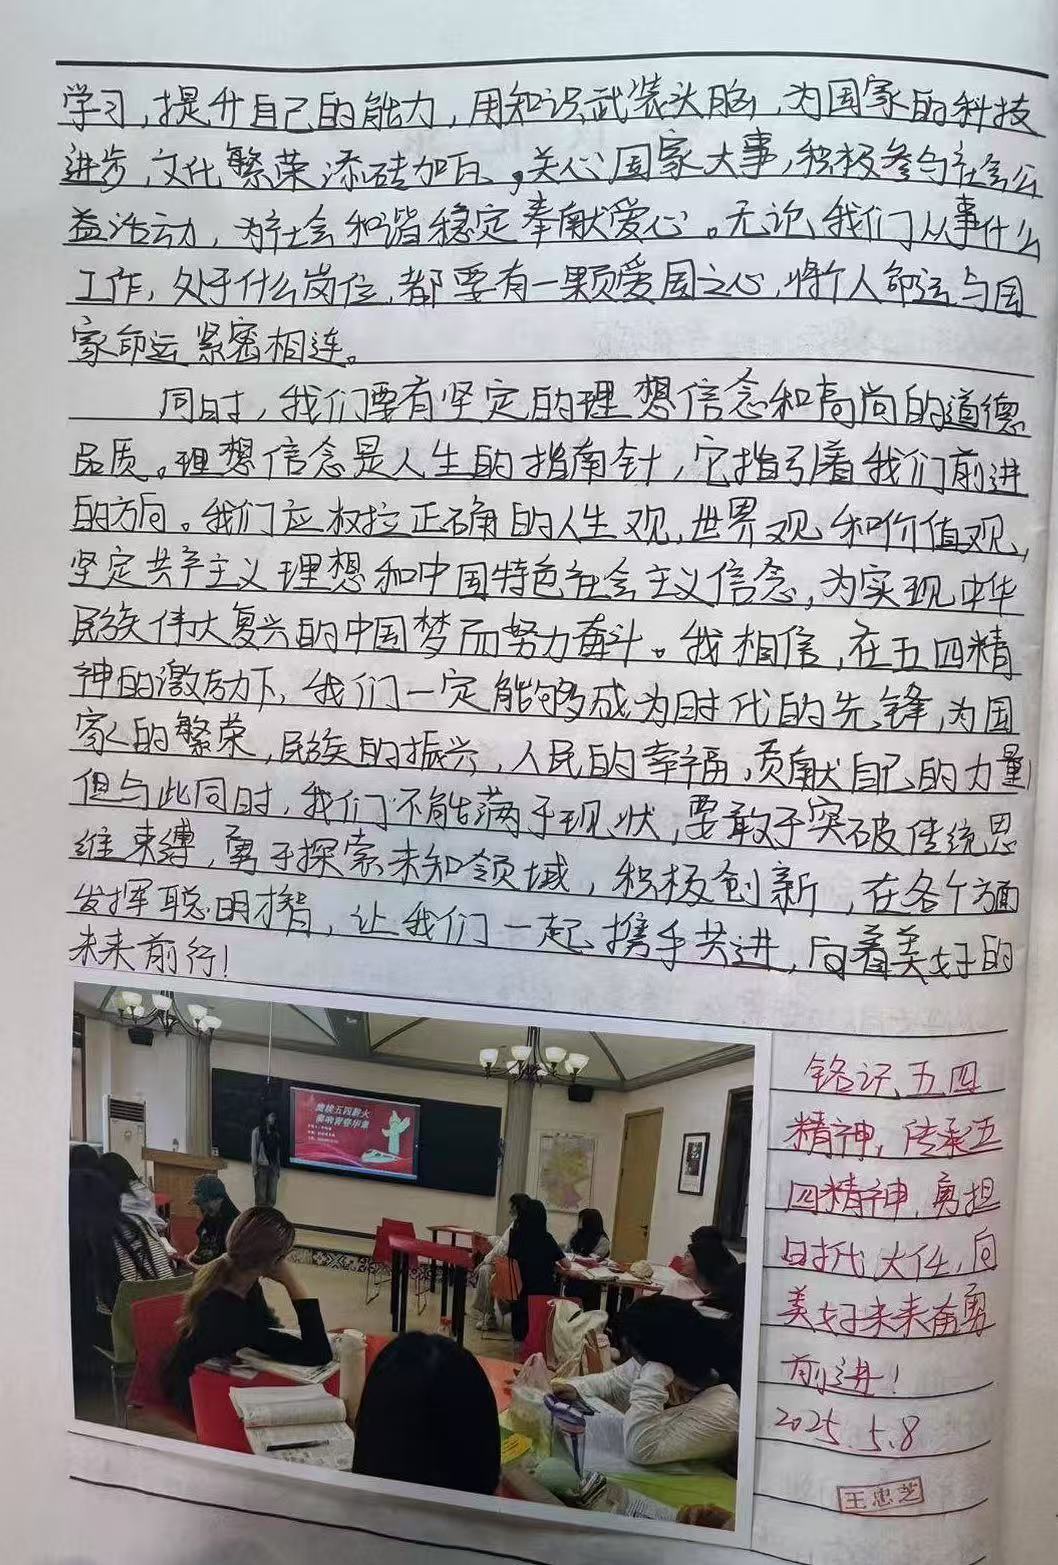 学习,提升自己的能力,用知识武装头脑,为国家的科技
进步,文化繁荣添砖加瓦。关心国家大事,积极参与社会公
益活动,为社会和谐稳定奉献爱心。无论我们从事什么
工作,处于什么岗位,都要有一颗爱国之心,将个人命运与国
家命运紧密相连。
同时,我们要有坚定的理想信念和高尚的道德
品质。理想信念是人生的指南针,它指引着我们前进
的方向。我们应树立正确的人生观,世界观和价值观,
坚定共产主义理想和中国特色社会主义信念,为实现中华
民族伟大复兴的中国梦而努力奋斗。我相信,在五四精
神的激励下,我们一定能够成为时代的先锋,为国
家的繁荣,民族的振兴,人民的幸福,贡献自己的力量!
但与此同时,我们不能满于现状,要敢于突破传统思
维束缚,勇于探索未知领域,积极创新,在各个方面
发挥聪明才智,让我们一起携手共进,向着美好的
未来前行!
赓续五四薪火
奏响青春华章
铭记五四
精神,传承五
四精神,勇担
时代大任,向
美好未来奋勇
前进!
2025.5.8
王忠芝